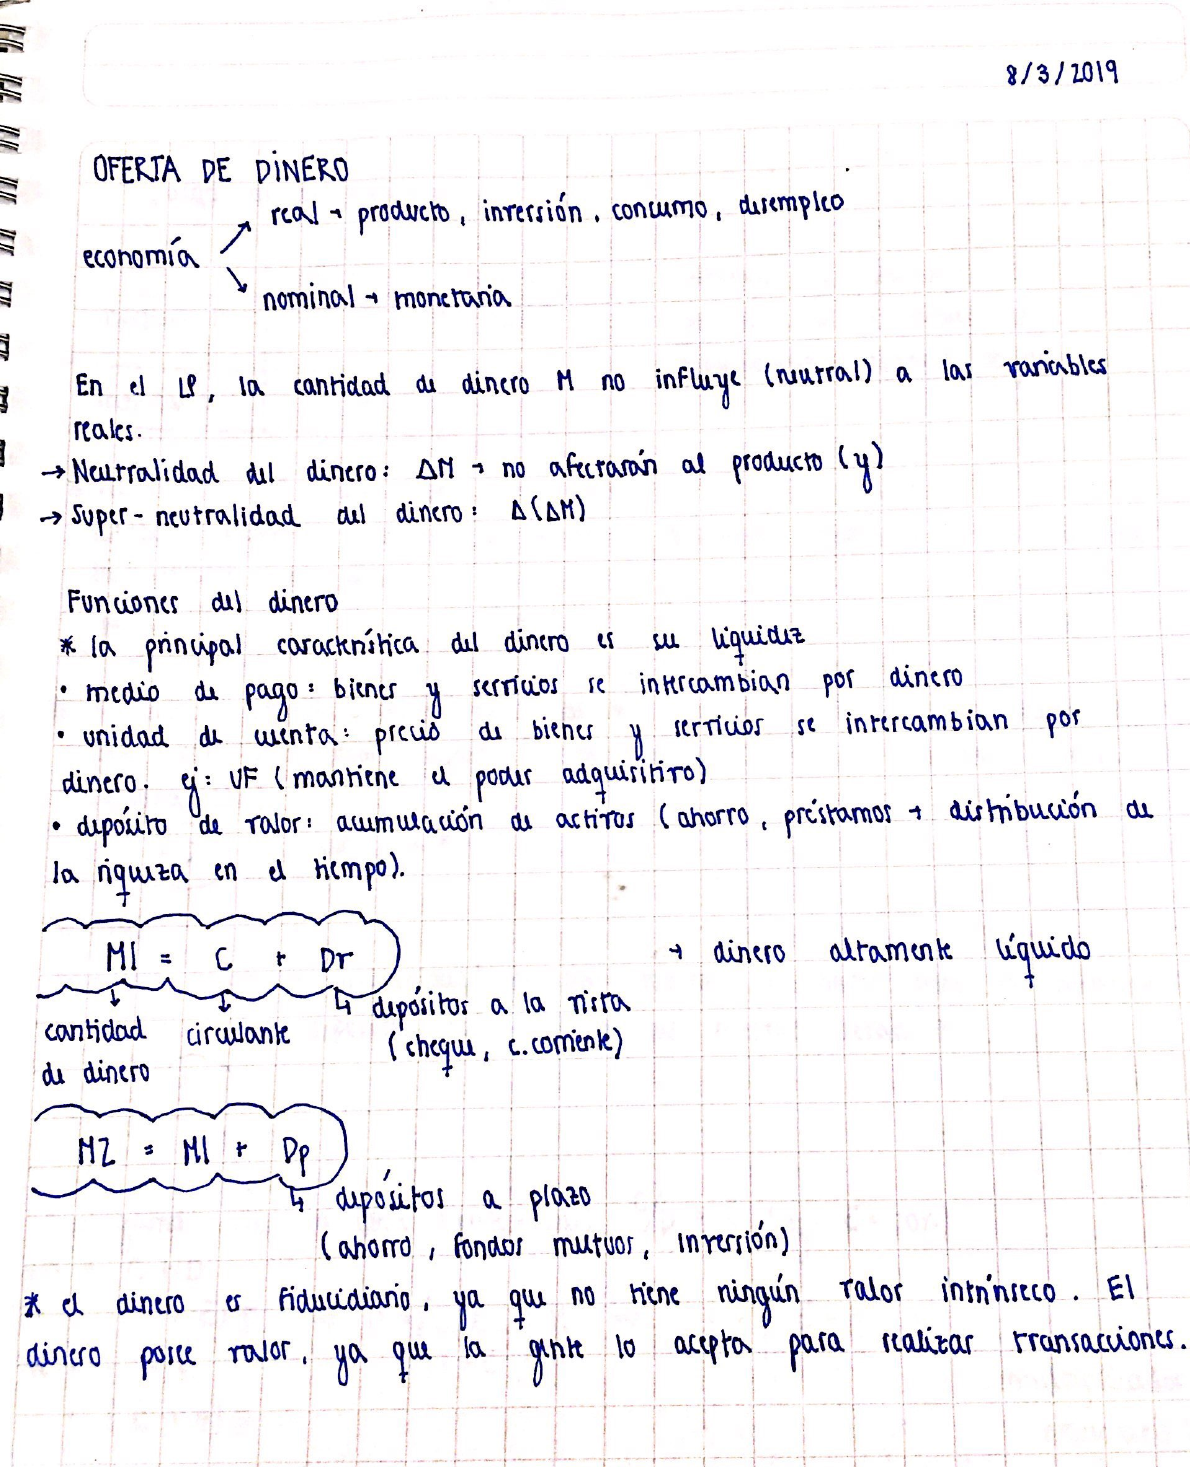 8/3/2019
OFERTA DE DINERO
real → producto, inversión, consumo, desempleo
economía
nominal → monetaria
En el LP, la cantidad de dinero M no influye (neutral) a las variables
reales.
→ Neutralidad del dinero: ΔM → no afectarán al producto (y)
→ Super-neutralidad del dinero: Δ(ΔM)
Funciones del dinero
* la principal característica del dinero es su liquidez
• medio de pago: bienes y servicios se intercambian por dinero
• unidad de cuenta: precio de bienes y servicios se intercambian por
dinero. ej: UF (mantiene el poder adquisitivo)
• depósito de valor: acumulación de activos (ahorro, préstamos → distribución de
la riqueza en el tiempo).
M1 = C + Dv → dinero altamente líquido
cantidad circulante ↳ depósitos a la vista
de dinero (cheque, c.corriente)
M2 = M1 + Dp
↳ depósitos a plazo
(ahorro, fondos mutuos, inversión)
* el dinero es fiducidiario, ya que no tiene ningún valor intrínseco. El
dinero posee valor, ya que la gente lo acepta para realizar transacciones.